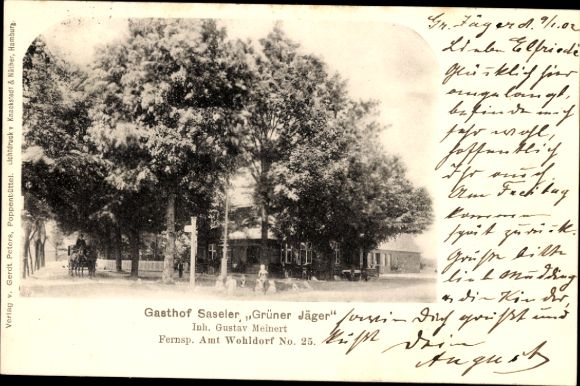 Gr. Jäger d. 9/1.02
Liebe Elfriede
Glücklich hier
angelangt.
befinde mich
sehr wohl,
hoffentlich
Ihr auch
Am Freitag
kommen
spät zurück.
Grüße bitte
lieb Mudding
u die Kinder,
sowie Dich grüßt und
küßt Dein
August
Gasthof Saseler „Grüner Jäger"
Inh. Gustav Meinert
Fernsp. Amt Wohldorf No. 25.
Verlag v. Gerdt Peters, Poppenbüttel. Lichtdruck v. Knackstedt & Näther, Hamburg.